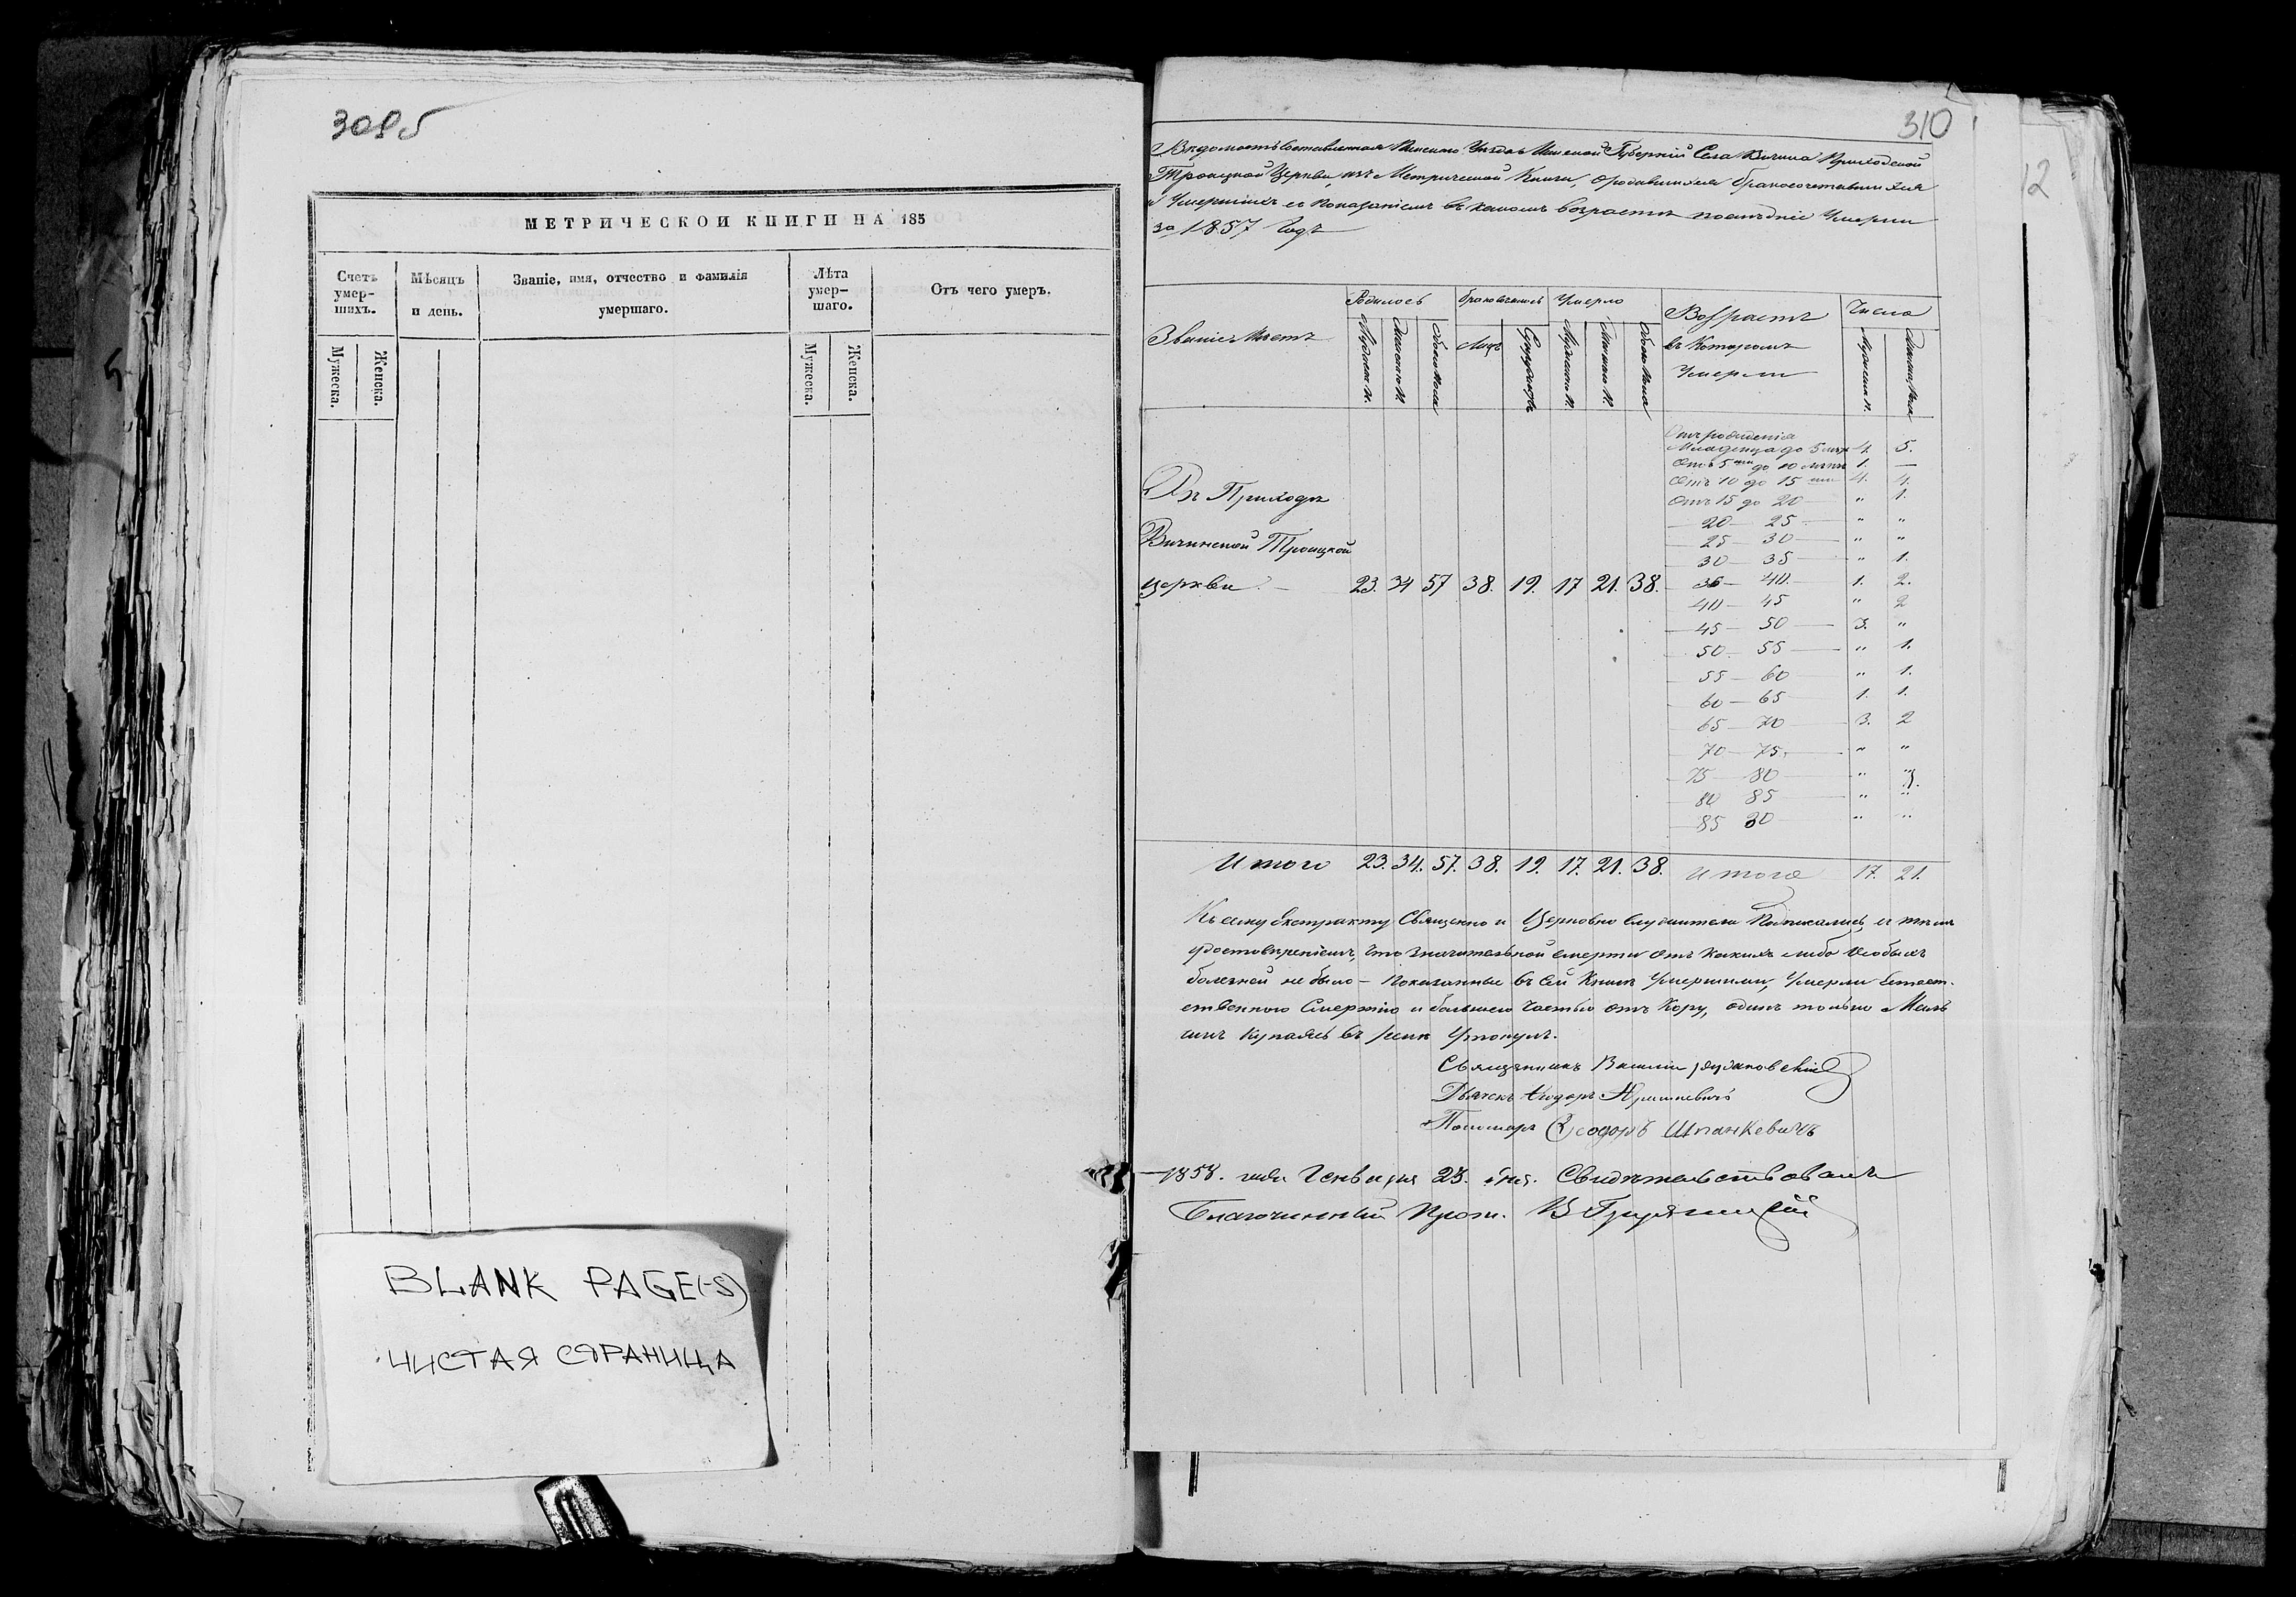 309б
МЕТРИЧЕСКОЙ КНИГИ НА 185
Счетъ умер-шихъ.
Мужеска.
Женска.
Мѣсяцъ и день.
Званіе, имя, отчество и фамилія умершаго.
Лѣта умер-шаго.
Мужеска.
Женска.
Отъ чего умеръ.
BLANK PAGE(-S)
ЧИСТАЯ СТРАНИЦА
310
2
Вѣдомость составленная Пинскаго Уѣзда Минской Губерніи Села Вичина Приходской
Троицкой Церкви, изъ Метрической Книги, о родившихся бракосочетавшихся
и Умершихъ съ показаніемъ въ какомъ возрастѣ послѣдніе Умерли
за 1857 Годъ
Званіе мѣстъ
Родилось
Мужеска п.
Женска п.
Обоего пола
Браковѣнчалось
Лицъ
Супружествъ
Умерло
Мужеска п.
Женска п.
Обоего пола
Возрастъ
въ Которомъ
Умерли
Число
Мужеска п.
Женска пола
Отъ рожденія
Младенца до 5 лѣтъ 4. 5.
Отъ 5ти до 10 лѣтъ 1. —
Отъ 10 до 15 ти 4. 4.
Отъ 15 до 20 " 1.
20 — 25 " "
25 — 30 " "
30 — 35 " 1.
35 — 40 1. 2.
40 — 45 " 2
45 — 50 3. "
50 — 55 " 1.
55 — 60 " 1.
60 — 65 1. 1.
65 — 70 3. 2
70 — 75 " "
75 — 80 " "
80 85 " "
85 90 " "
Въ Приходѣ
Вичинской Троицкой
церкви 23. 34 57 38. 19. 17 21. 38.
Итого 23. 34. 57. 38. 19. 17. 21. 38. Итого 17. 21.
Къ сему Екстракту Священно и Церковно служители Подписались, съ тѣмъ
удостовѣреніемъ, что значительной смерти отъ какихъ либо особыхъ
болезней не было — показанные въ сей Книгѣ Умершими, Умерли Естест-
ственною Смертію и большею частью отъ Кору, одинъ только Маль
чикъ купаясь въ рекѣ Утонулъ.
Священникъ Василій
Дьячекъ Ѳеодоръ
Пономаръ Ѳеодоръ Шпанкевичъ
1858. года Генваря 23. дня. Свидѣтельствовалъ
Благочинный Прот. В